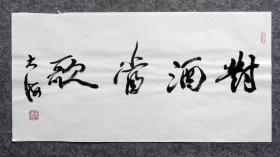 對酒當歌
大海